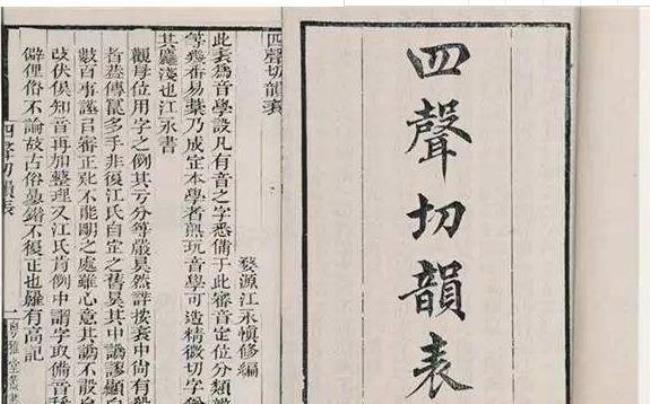 四聲切韻表
四聲切韻表
婺源江永慎修編
此表為音學設凡有音之字悉備于此審音定位分類
等幾番易葉乃成定本學者熟玩音學可造精微切字
其麤淺也江永書
觀母位用字之例其分等嚴然詳按表中尚有
者葢傳冩多手非復江氏自定之舊其中譌謬顯白
數百事謹吕審正不能之處雖心意其譌不敢自
攺伏俟知音再加整理又江氏例中謂字取備音
僻俚俗不論故古俗錯不復正也有高記
四聲切韻表
一
雅堂叢書